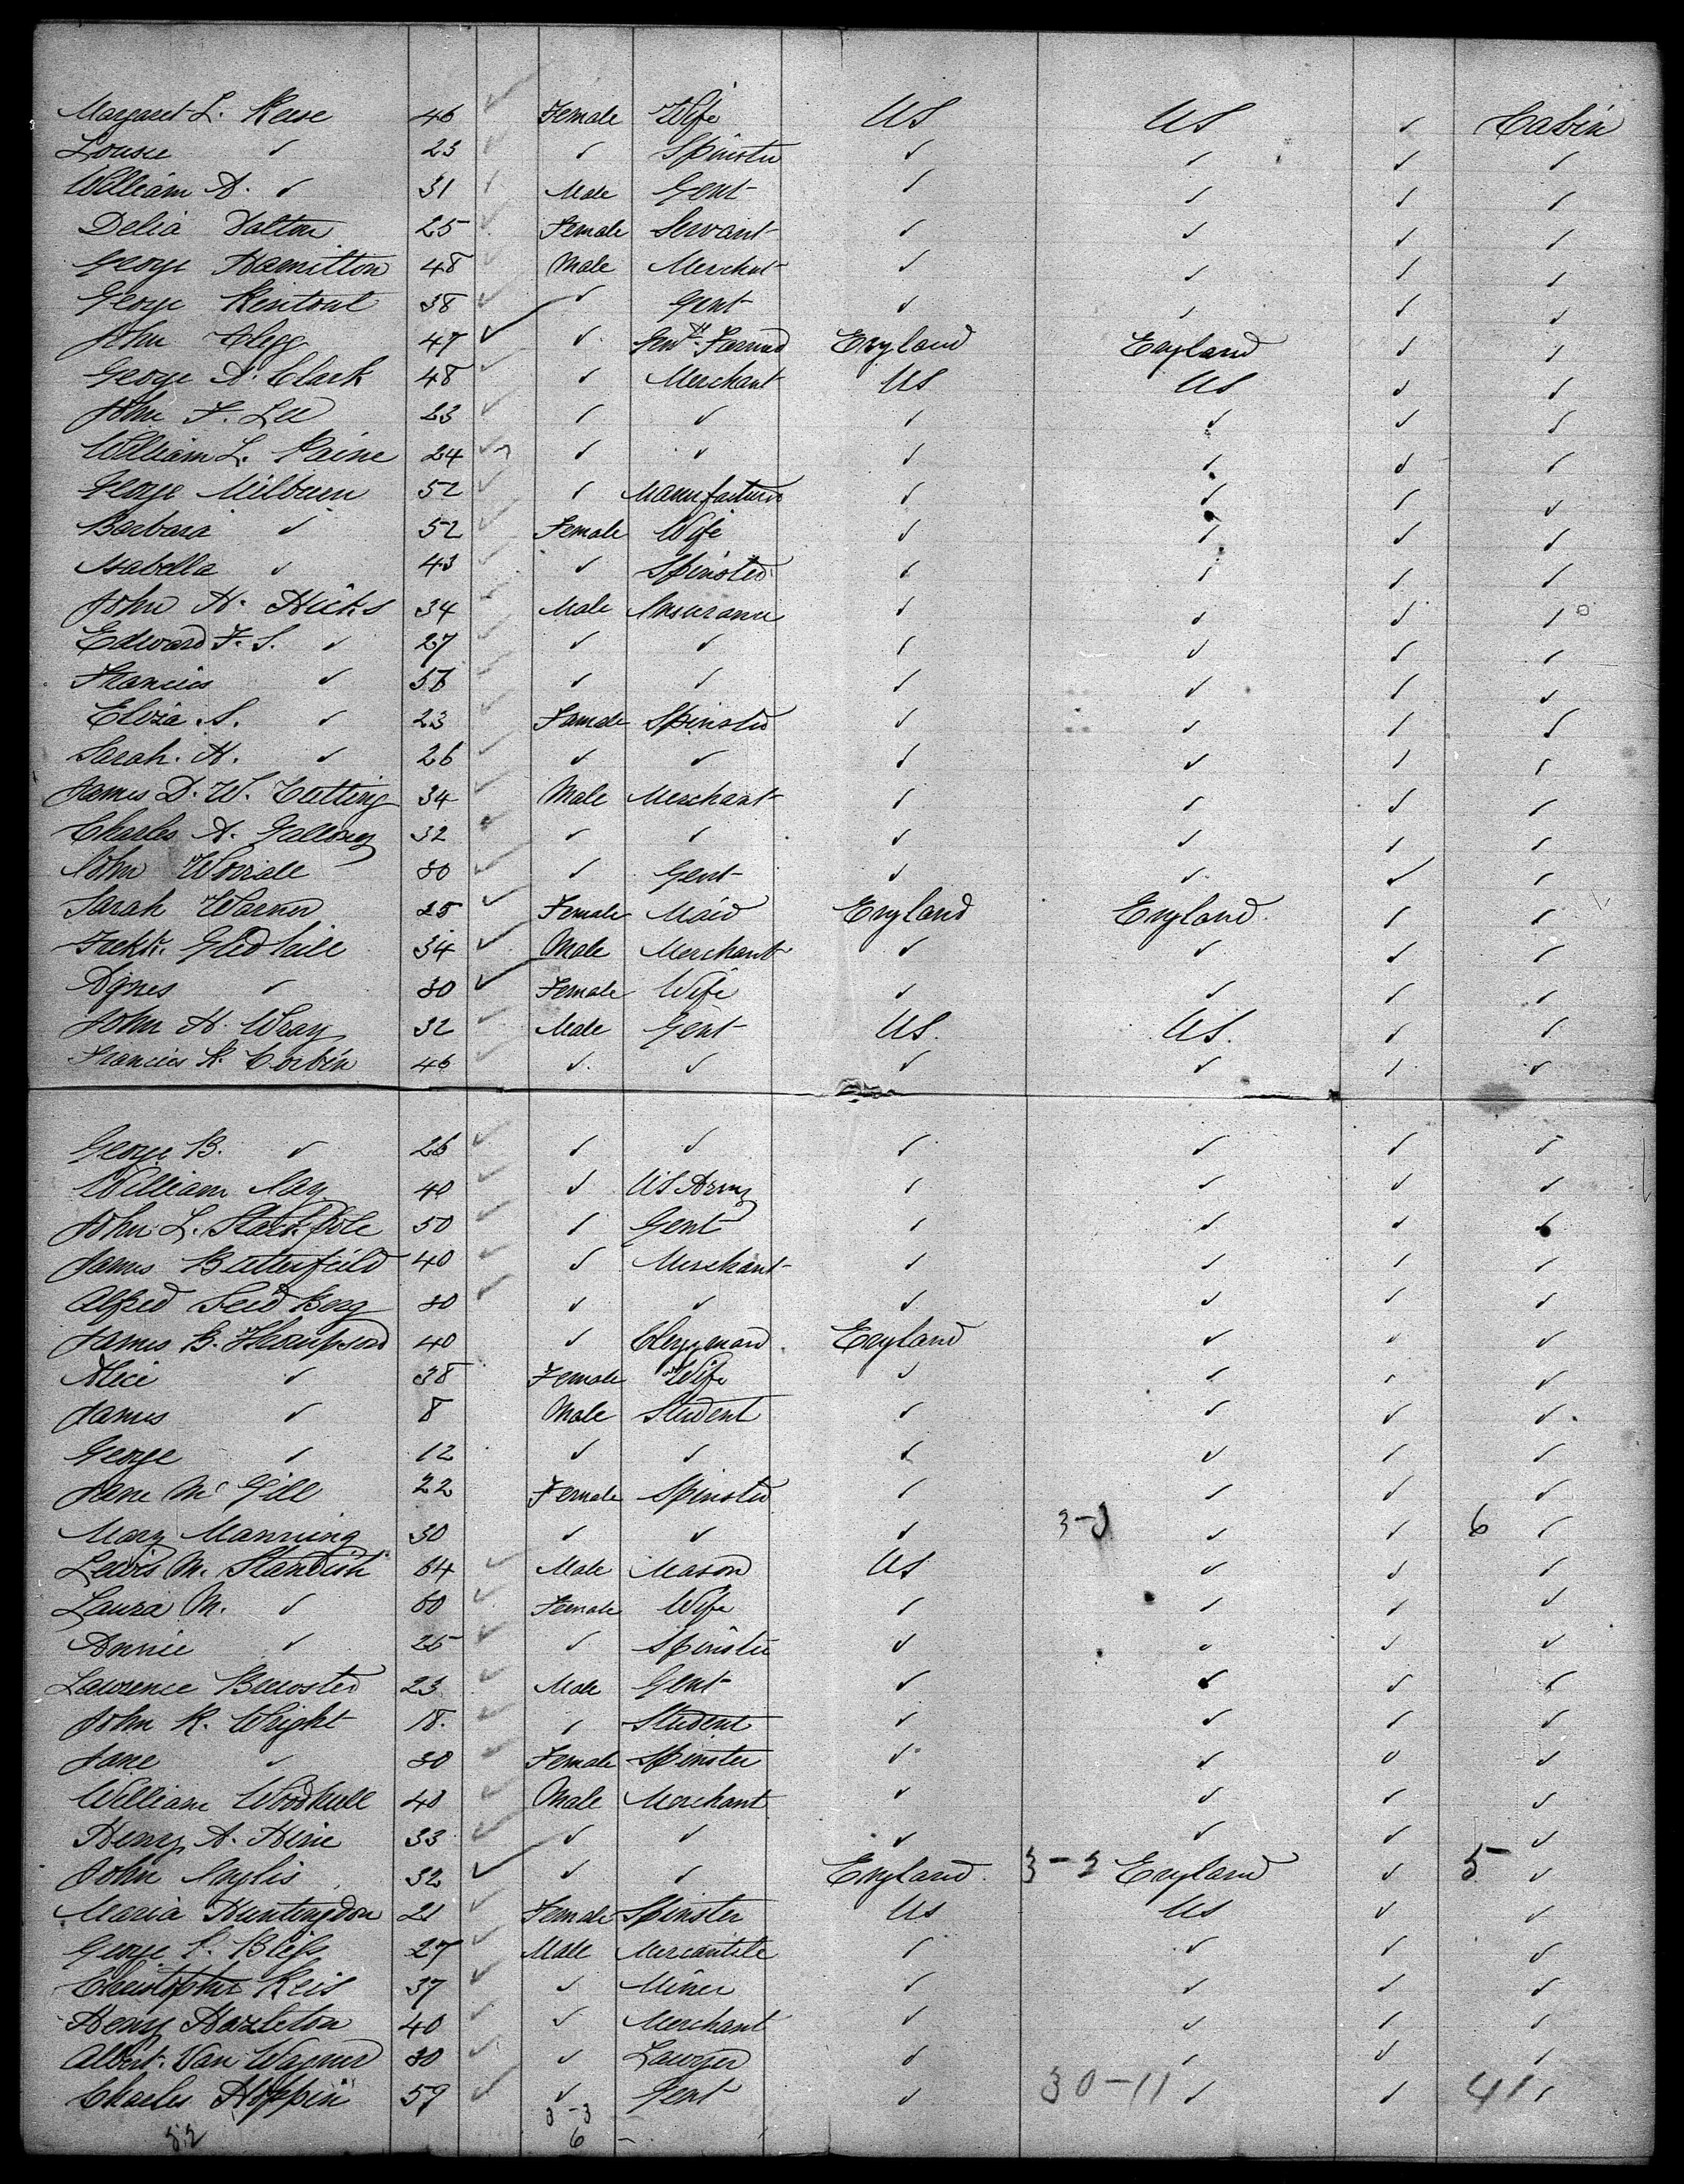 Margaret L. Reese 46 Female Wife US US ✓ Cabin
Louise ✓ 23 ✓ Spinster ✓ ✓ ✓ ✓
William A. ✓ 31 Male Gent ✓ ✓ ✓ ✓
Delia Dalton 25 Female Servant ✓ ✓ ✓ ✓
George Hamilton 48 Male Merchat ✓ ✓ ✓ ✓
George 38 ✓ Gent ✓ ✓ ✓ ✓
John Clegg 47 ✓ ✓ England England ✓ ✓
George A. Clark 48 ✓ Merchant US US ✓ ✓
John F. Lee 23 ✓ ✓ ✓ ✓ ✓ ✓
William L. Paine 24 ✓ ✓ ✓ ✓ ✓ ✓
George Milburn 52 ✓ Manufacturer ✓ ✓ ✓ ✓
Barbara ✓ 52 Female Wife ✓ ✓ ✓ ✓
Isabella ✓ 43 ✓ Spinster ✓ ✓ ✓ ✓
John H. Hicks 34 Male Insurance ✓ ✓ ✓ ✓
Edward F. S. ✓ 27 ✓ ✓ ✓ ✓ ✓ ✓
Francis ✓ ✓ ✓ ✓ ✓ ✓ ✓
Eliza S. ✓ 23 Female Spinster ✓ ✓ ✓ ✓
Sarah. H. ✓ 26 ✓ ✓ ✓ ✓ ✓ ✓
James D. W. Cutting 34 Male Merchant ✓ ✓ ✓ ✓
Charles A. 32 ✓ ✓ ✓ ✓ ✓ ✓
John Worrall 30 ✓ Gent ✓ ✓ ✓ ✓
Sarah Warner 25 Female Maid England England ✓ ✓
Fredk. Gledhill 34 ✓ Male Merchant ✓ ✓ ✓ ✓
Agnes ✓ 30 ✓ Female Wife ✓ ✓ ✓ ✓
John H. Wray 32 Male Gent US. US. ✓ ✓
Francis R. Corbin 46 ✓ ✓ ✓ ✓ ✓ ✓
George B. ✓ 26 ✓ ✓ ✓ ✓ ✓ ✓
William Jay 40 ✓ US Army ✓ ✓ ✓ ✓
John L. Stackpole 50 ✓ Gent ✓ ✓ ✓ ✓
James Butterfield 40 ✓ Merchant ✓ ✓ ✓ ✓
Alfred Seidberg 30 ✓ ✓ ✓ ✓ ✓ ✓
James B. Thompson 40 ✓ Clergyman England ✓ ✓ ✓
Alice ✓ 38 Female Wife ✓ ✓ ✓ ✓
James ✓ 8 Male Student ✓ ✓ ✓ ✓
George ✓ 12 ✓ ✓ ✓ ✓ ✓ ✓
Jane McGill 22 Female Spinster ✓ ✓ ✓ ✓
Mary Manning 30 ✓ ✓ ✓ 3-3 ✓ ✓ 6 ✓
Lewis M. Standish 64 Male Mason US ✓ ✓ ✓
Laura M. ✓ 60 Female Wife ✓ ✓ ✓ ✓
Annie ✓ 25 ✓ Spinster ✓ ✓ ✓ ✓
Lawrence Brewster 23 Male Gent ✓ ✓ ✓ ✓
John R. Wright 18. ✓ Student ✓ ✓ ✓ ✓
Jane ✓ 30 Female Spinster ✓ ✓ ✓ ✓
William Woodhull 43 Male Merchant ✓ ✓ ✓ ✓
Henry A. 33 ✓ ✓ ✓ ✓ ✓ ✓
John Inglis 32 ✓ ✓ ✓ England 3-2 England ✓ 5 ✓
Maria Huntingdon 21 Female Spinster US US ✓ ✓
George P. Bliss 27 Male Mercantile ✓ ✓ ✓ ✓
Christopher Reis 37 ✓ Miner ✓ ✓ ✓ ✓
Henry Hazleton 40 ✓ Merchant ✓ ✓ ✓ ✓
Albert Van Wagner 30 ✓ Lawyer ✓ ✓ ✓ ✓
Charles Hoppin 59 ✓ Gent ✓ 30-11 ✓ ✓ 41 ✓
52 3-3
6 -